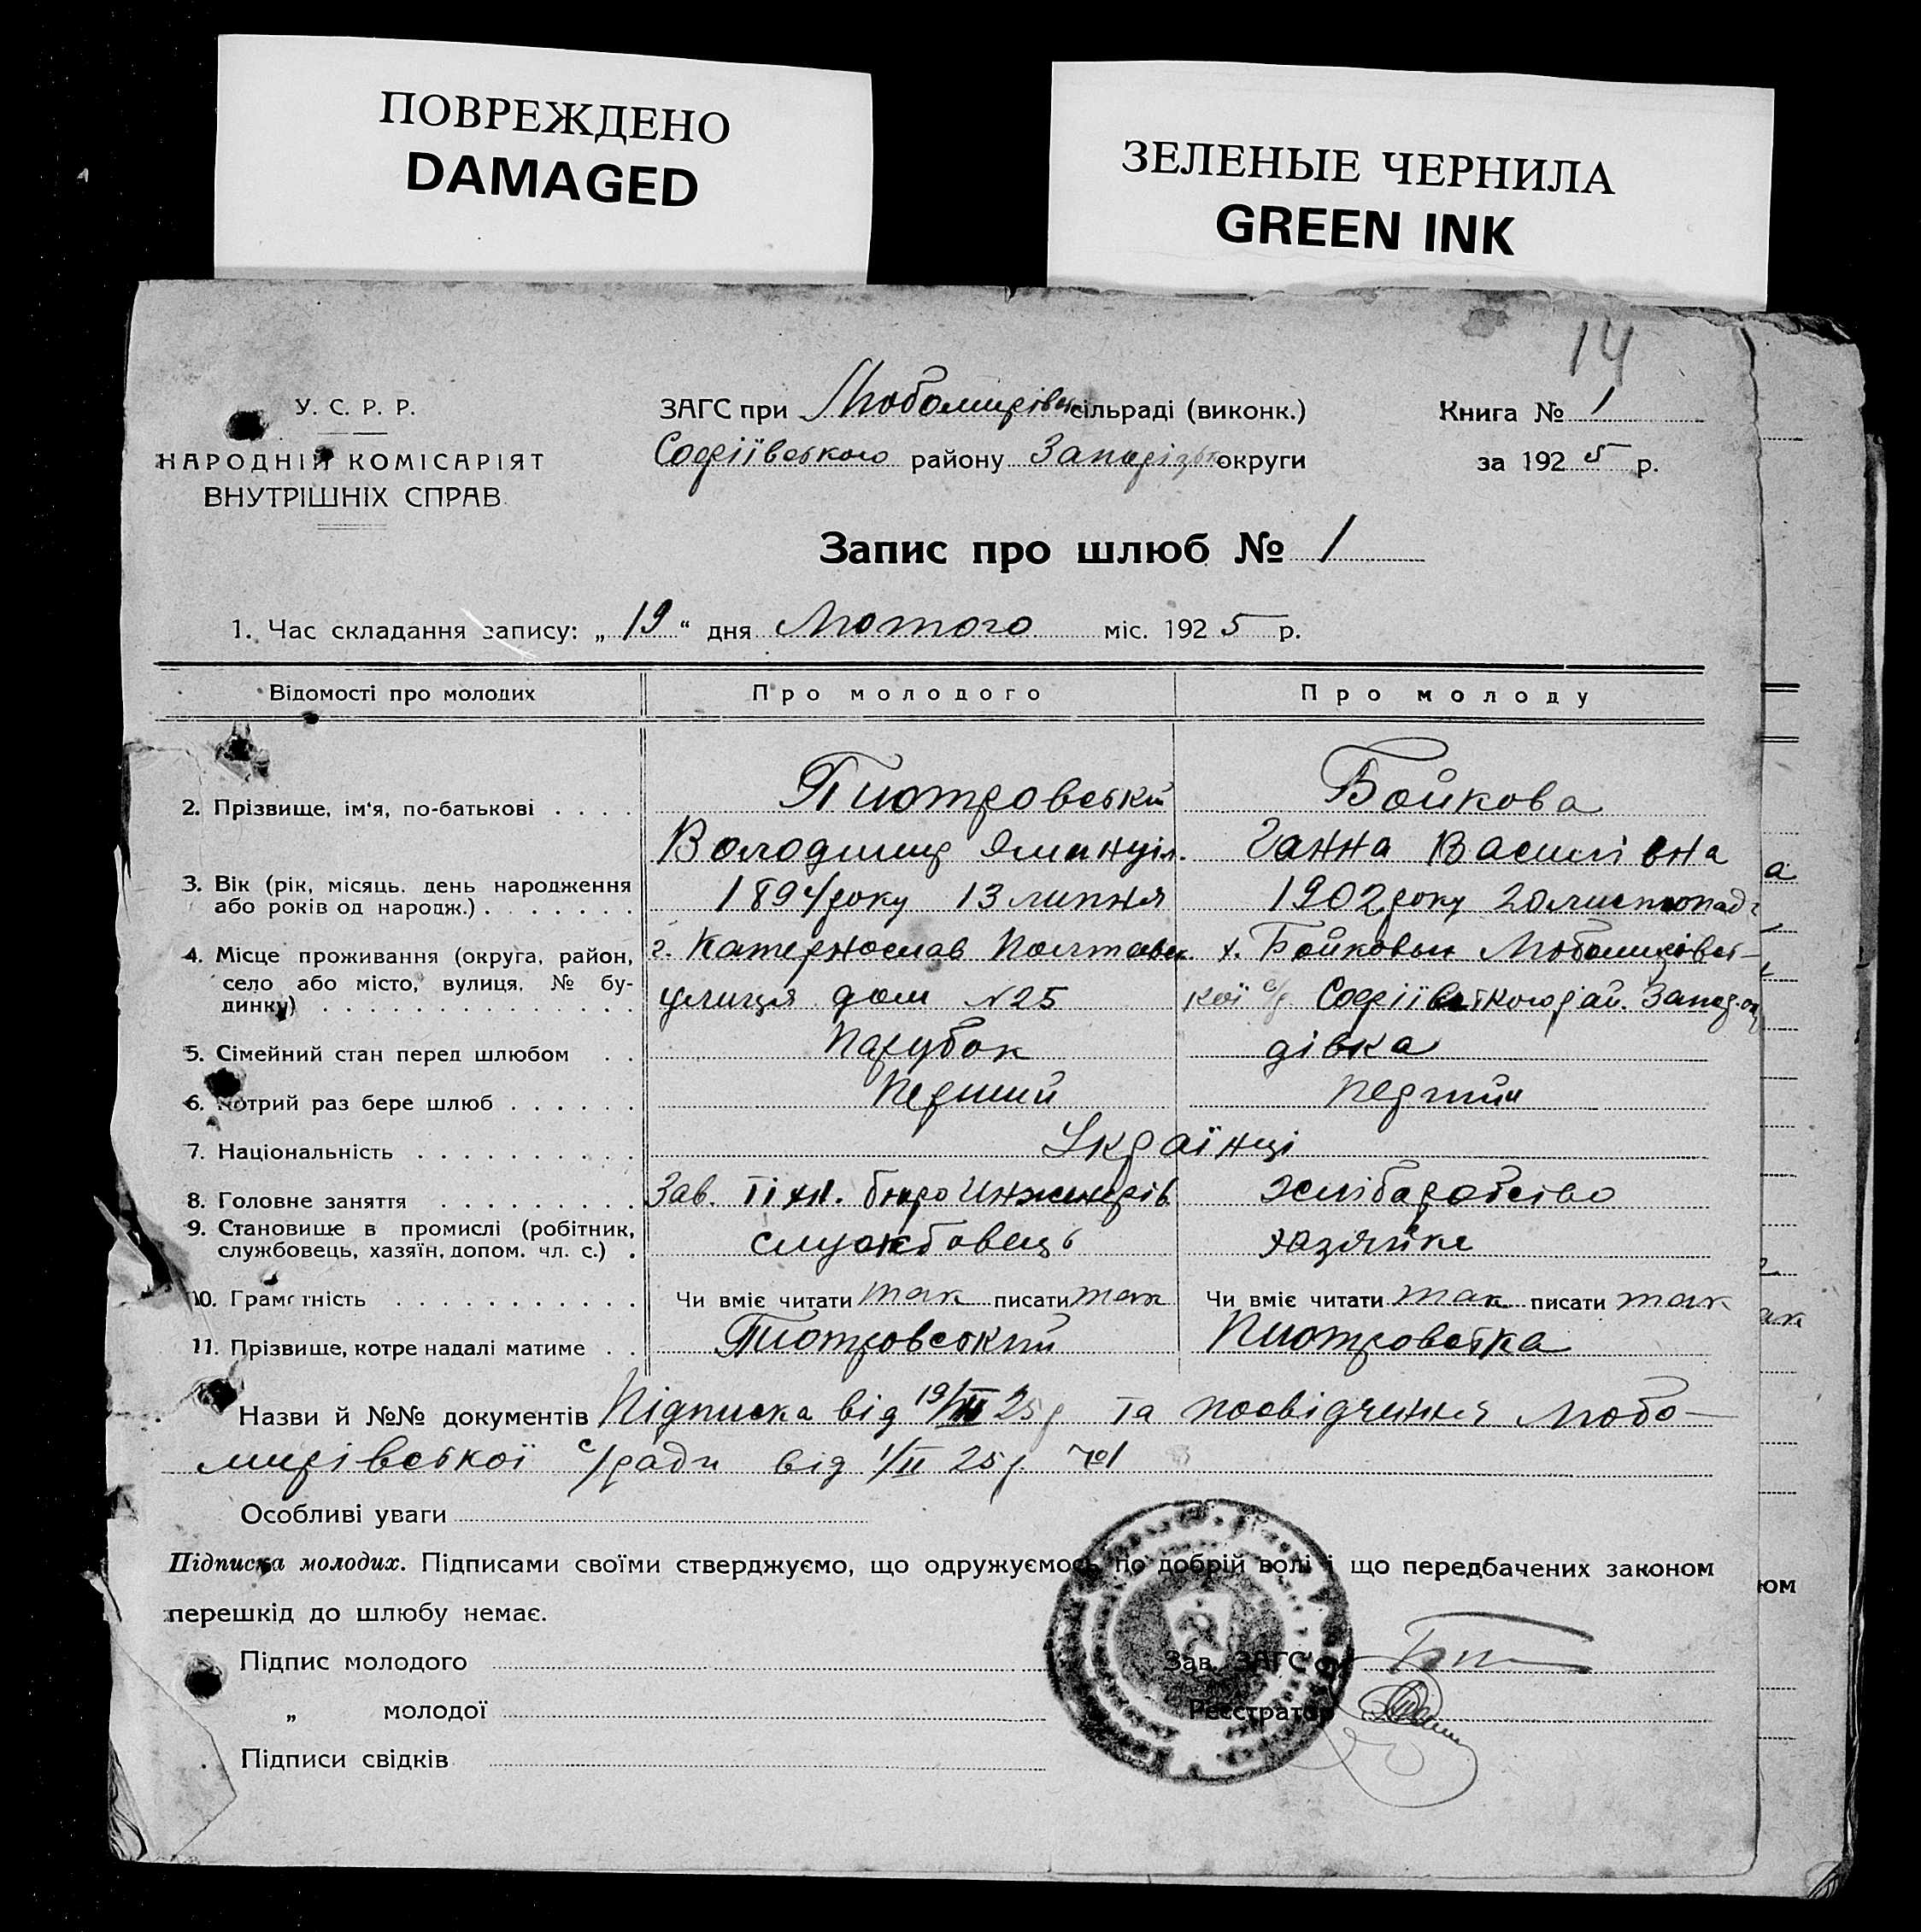 ПОВРЕЖДЕНО
DAMAGED
ЗЕЛЕНЫЕ ЧЕРНИЛА
GREEN INK
14
У. С. Р. Р.
НАРОДНІЙ КОМІСАРІЯТ
ВНУТРІШНІХ СПРАВ
ЗАГС при Любомирівськ сільраді (виконк.)
Софіївського району Запорізьк округи
Книга № 1
за 1925 р.
Запис про шлюб № 1
1. Час складання запису: „19“ дня Лютого міс. 1925 р.
Відомості про молодих
Про молодого
Про молоду
2. Прізвище, ім'я, по-батькові
Пиотровськи
Володимир
Бойкова
Ганна Василівна
3. Вік (рік, місяць. день народження
або років од народж.)
1894 року 13 липня
1902 року 20 листопад
4. Місце проживання (округа, район,
село або місто, вулиця. № бу-
динку)
г. Катернослав Полтавск.
улиця дом №25
х. Бойковы Любомирівсь-
кої с/р Софіївського рай. Запор. ок
5. Сімейний стан перед шлюбом
Парубок
дівка
6. Котрий раз бере шлюб
Перший
Перший
7. Національність
Українці
8. Головне заняття
Зав. Тіхн. бюро Инжинерів
хлібаробство
9. Становище в промислі (робітник,
службовець, хазяїн, допом. чл. с.)
службовець
хазяйка
10. Грамотність
Чи вміє читати так писати так
Чи вміє читати так писати так
11. Прізвище, котре надалі матиме
Пиотровський
Пиотровська
Назви й №№ документів Підписка від 19/II 25 р та посвідчиння Любо-
мирівської с/ради від 1/II 25 р. №1
Особливі уваги
Підписка молодих. Підписами своїми стверджуємо, що одружуємось по добрій волі і що передбачених законом
перешкід до шлюбу немає.
Підпис молодого
„ молодої
Підписи свідків
Зав. ЗАГС'ом
Реєстратор